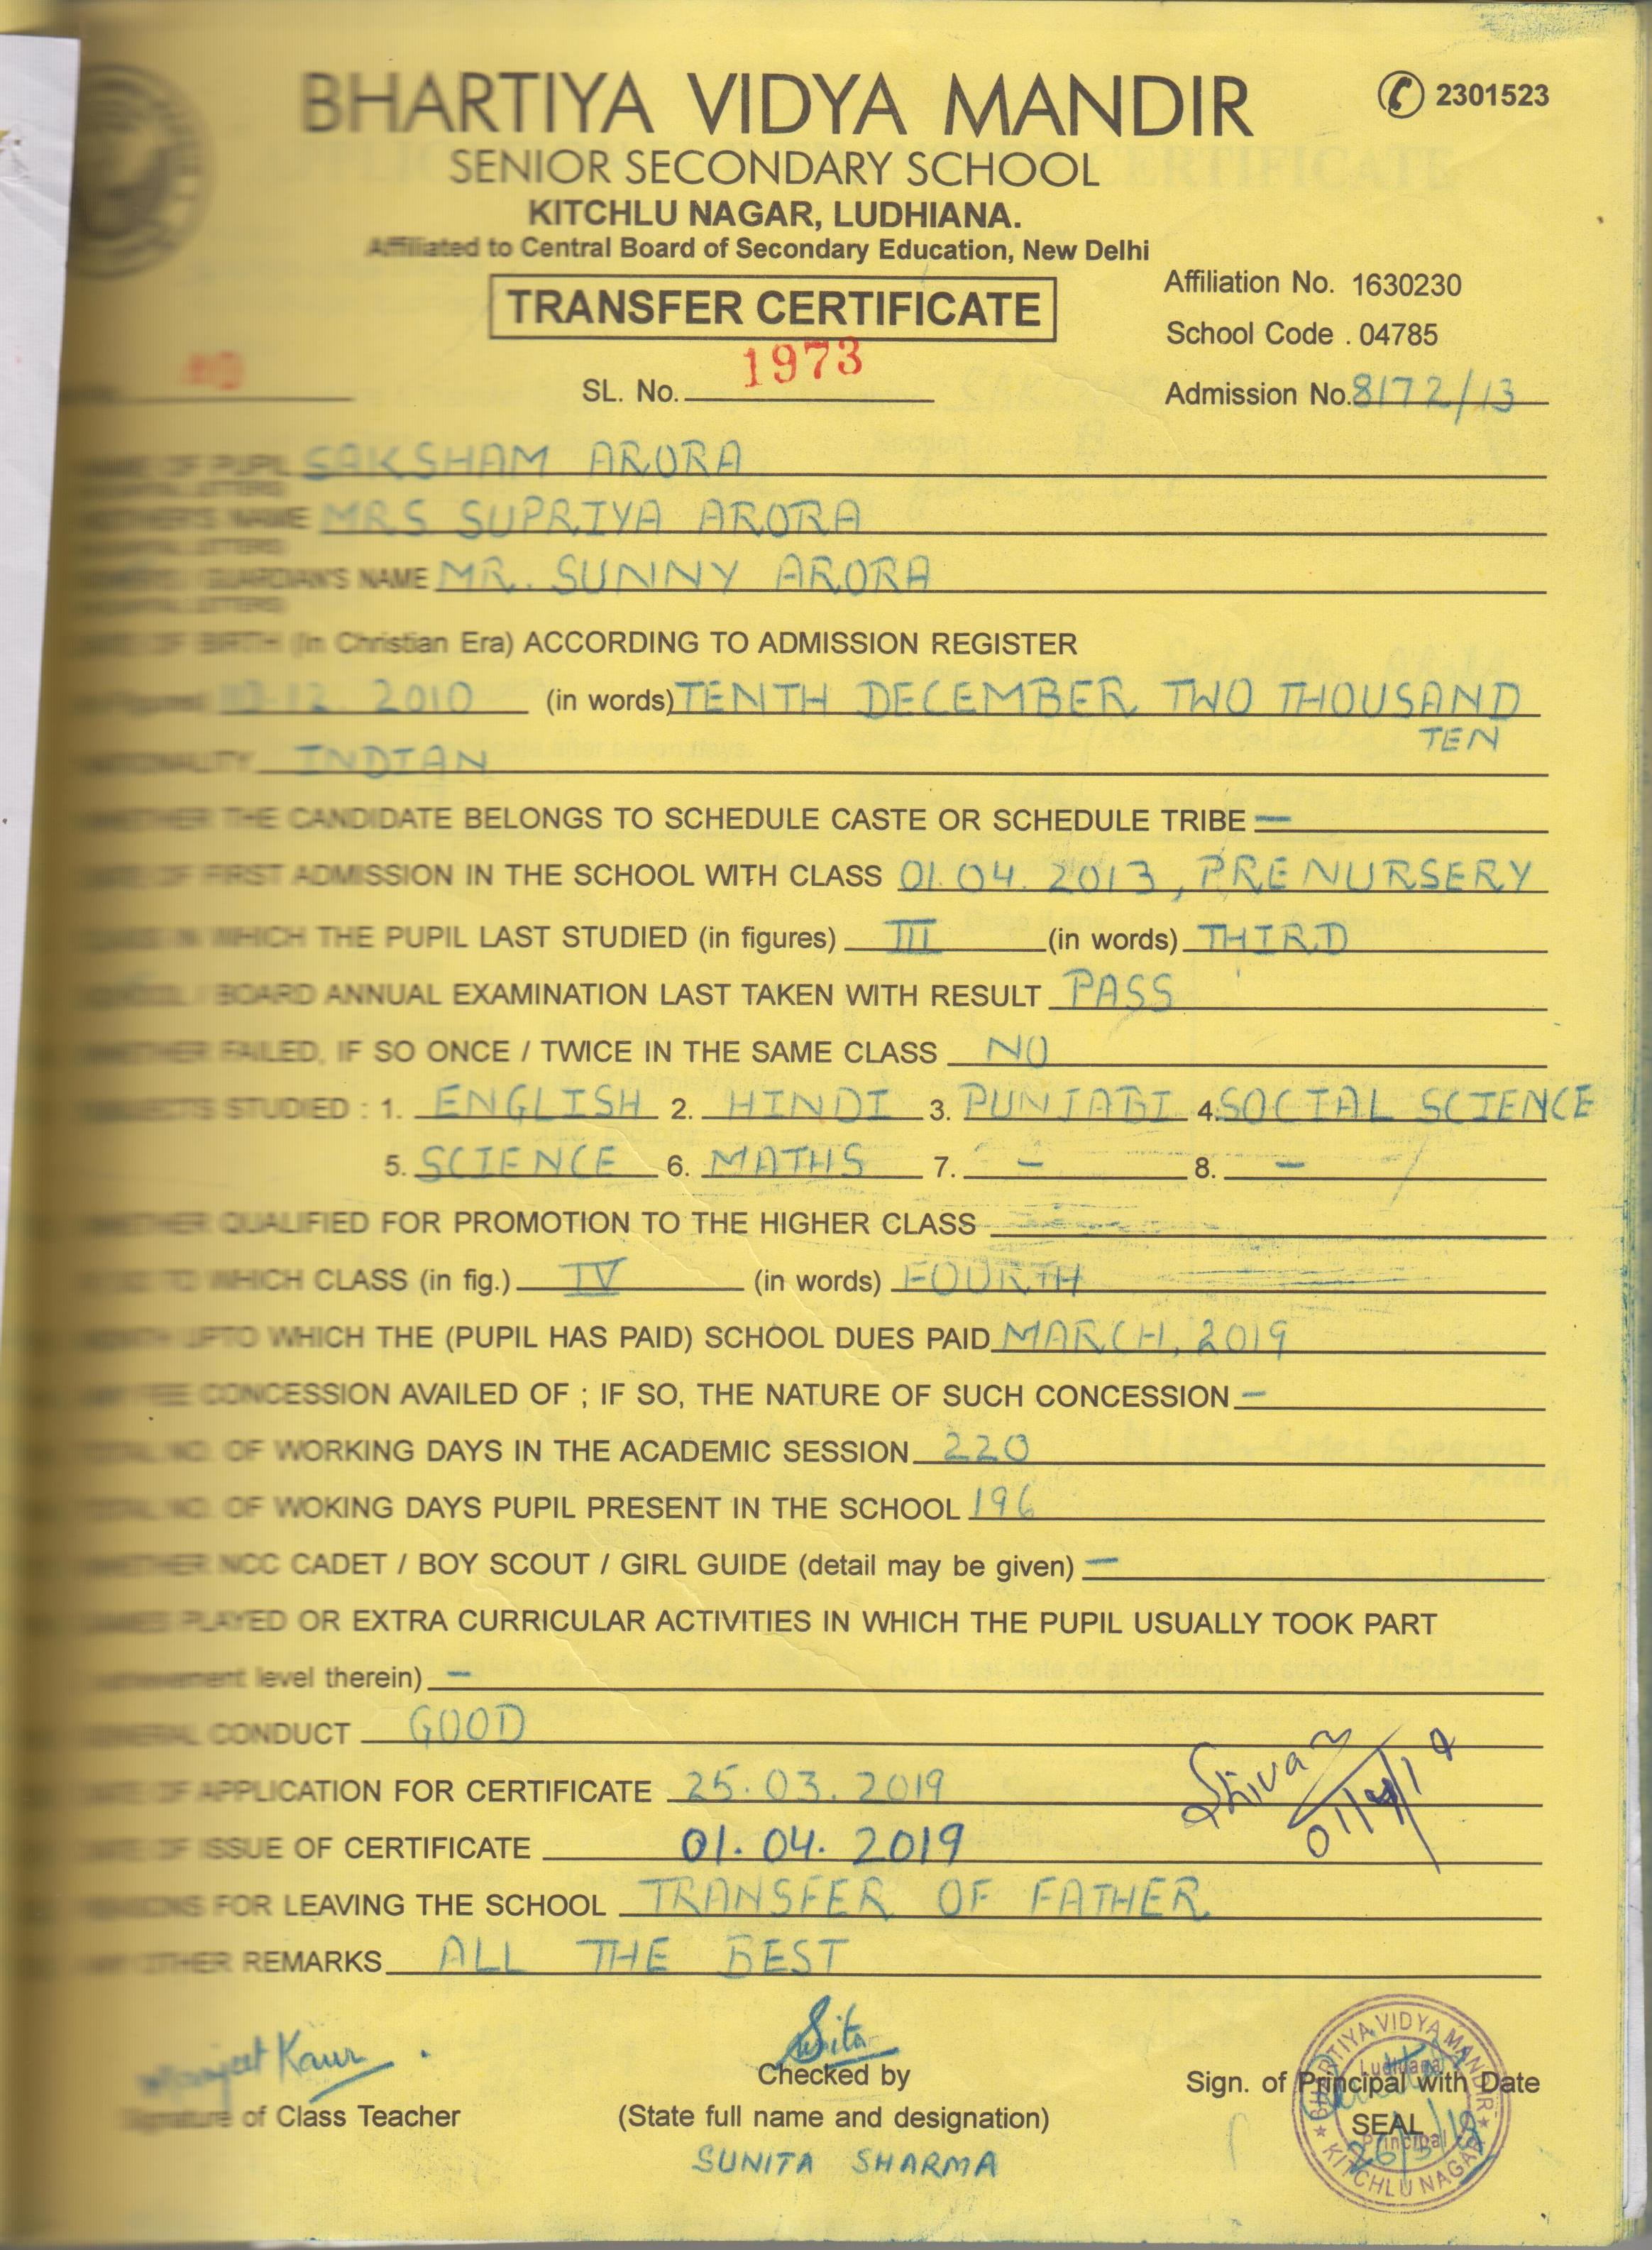 BHARTIYA VIDYA MANDIR
2301523
SENIOR SECONDARY SCHOOL
KITCHLU NAGAR, LUDHIANA.
Affiliated to Central Board of Secondary Education, New Delhi
TRANSFER CERTIFICATE
Affiliation No. 1630230
School Code . 04785
SL. No. 1973
Admission No. 8172/13
NAME OF PUPIL SAKSHAM ARORA
MOTHER'S NAME MRS SUPRIYA ARORA
GUARDIAN'S NAME MR. SUNNY ARORA
DATE OF BIRTH (In Christian Era) ACCORDING TO ADMISSION REGISTER
10-12. 2010 (in words) TENTH DECEMBER TWO THOUSAND
TEN
NATIONALITY INDIAN
WHETHER THE CANDIDATE BELONGS TO SCHEDULE CASTE OR SCHEDULE TRIBE —
DATE OF FIRST ADMISSION IN THE SCHOOL WITH CLASS 01.04.2013, PRENURSERY
CLASS IN WHICH THE PUPIL LAST STUDIED (in figures) III (in words) THIRD
SCHOOL / BOARD ANNUAL EXAMINATION LAST TAKEN WITH RESULT PASS
WHETHER FAILED, IF SO ONCE / TWICE IN THE SAME CLASS NO
SUBJECTS STUDIED : 1. ENGLISH 2. HINDI 3. PUNJABI 4. SOCIAL SCIENCE
5. SCIENCE 6. MATHS 7. - 8. -
WHETHER QUALIFIED FOR PROMOTION TO THE HIGHER CLASS
TO WHICH CLASS (in fig.) IV (in words) FOURTH
MONTH UPTO WHICH THE (PUPIL HAS PAID) SCHOOL DUES PAID MARCH, 2019
ANY FEE CONCESSION AVAILED OF ; IF SO, THE NATURE OF SUCH CONCESSION -
TOTAL NO. OF WORKING DAYS IN THE ACADEMIC SESSION 220
TOTAL NO. OF WOKING DAYS PUPIL PRESENT IN THE SCHOOL 196
WHETHER NCC CADET / BOY SCOUT / GIRL GUIDE (detail may be given) —
GAMES PLAYED OR EXTRA CURRICULAR ACTIVITIES IN WHICH THE PUPIL USUALLY TOOK PART
achievement level therein) -
GENERAL CONDUCT GOOD
DATE OF APPLICATION FOR CERTIFICATE 25.03.2019
DATE OF ISSUE OF CERTIFICATE 01.04.2019
REASONS FOR LEAVING THE SCHOOL TRANSFER OF FATHER
ANY OTHER REMARKS ALL THE BEST
Manjeet Kaur
Signature of Class Teacher
Checked by
(State full name and designation)
SUNITA SHARMA
Sign. of Principal with Date
SEAL
BHARTIYA VIDYA MANDIR
Ludhiana
Principal
KITCHLU NAGAR
26/3/19